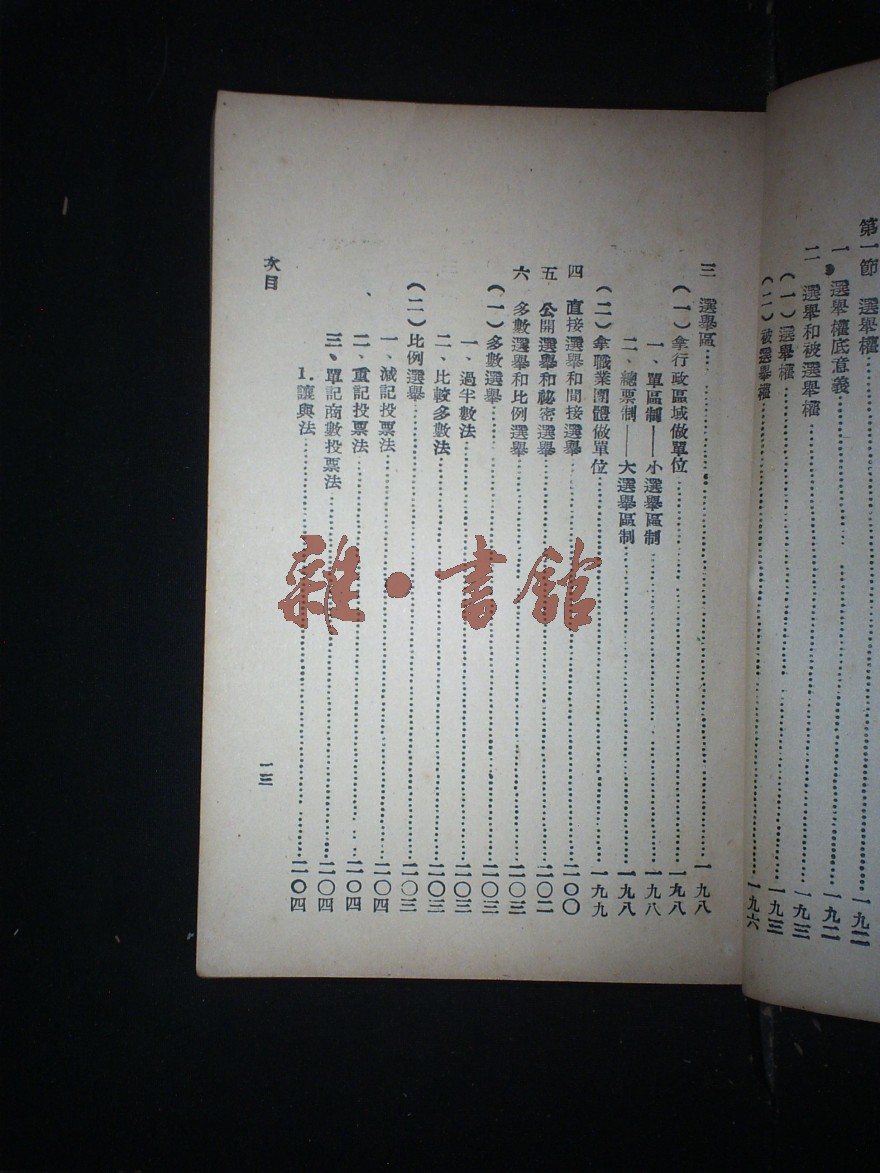 第一節 選舉權……一九二
一 選舉權底意義……一九二
二 選舉和被選舉權……一九三
(一)選舉權……一九三
(二)被選舉權……一九六
三 選舉區……一九八
(一)拿行政區域做單位……一九八
一、單區制——小選舉區制……一九八
二、總票制——大選舉區制……一九八
(二)拿職業團體做單位……一九九
四 直接選舉和間接選舉……二〇〇
五 公開選舉和祕密選舉……二〇二
六 多數選舉和比例選舉……二〇三
(一)多數選舉……二〇三
一、過半數法……二〇三
二、比較多數法……二〇三
(二)比例選舉……二〇三
一、減記投票法……二〇四
二、重記投票法……二〇四
三、單記商數投票法……二〇四
1.讓與法……二〇四
次目
一三
雜·書館